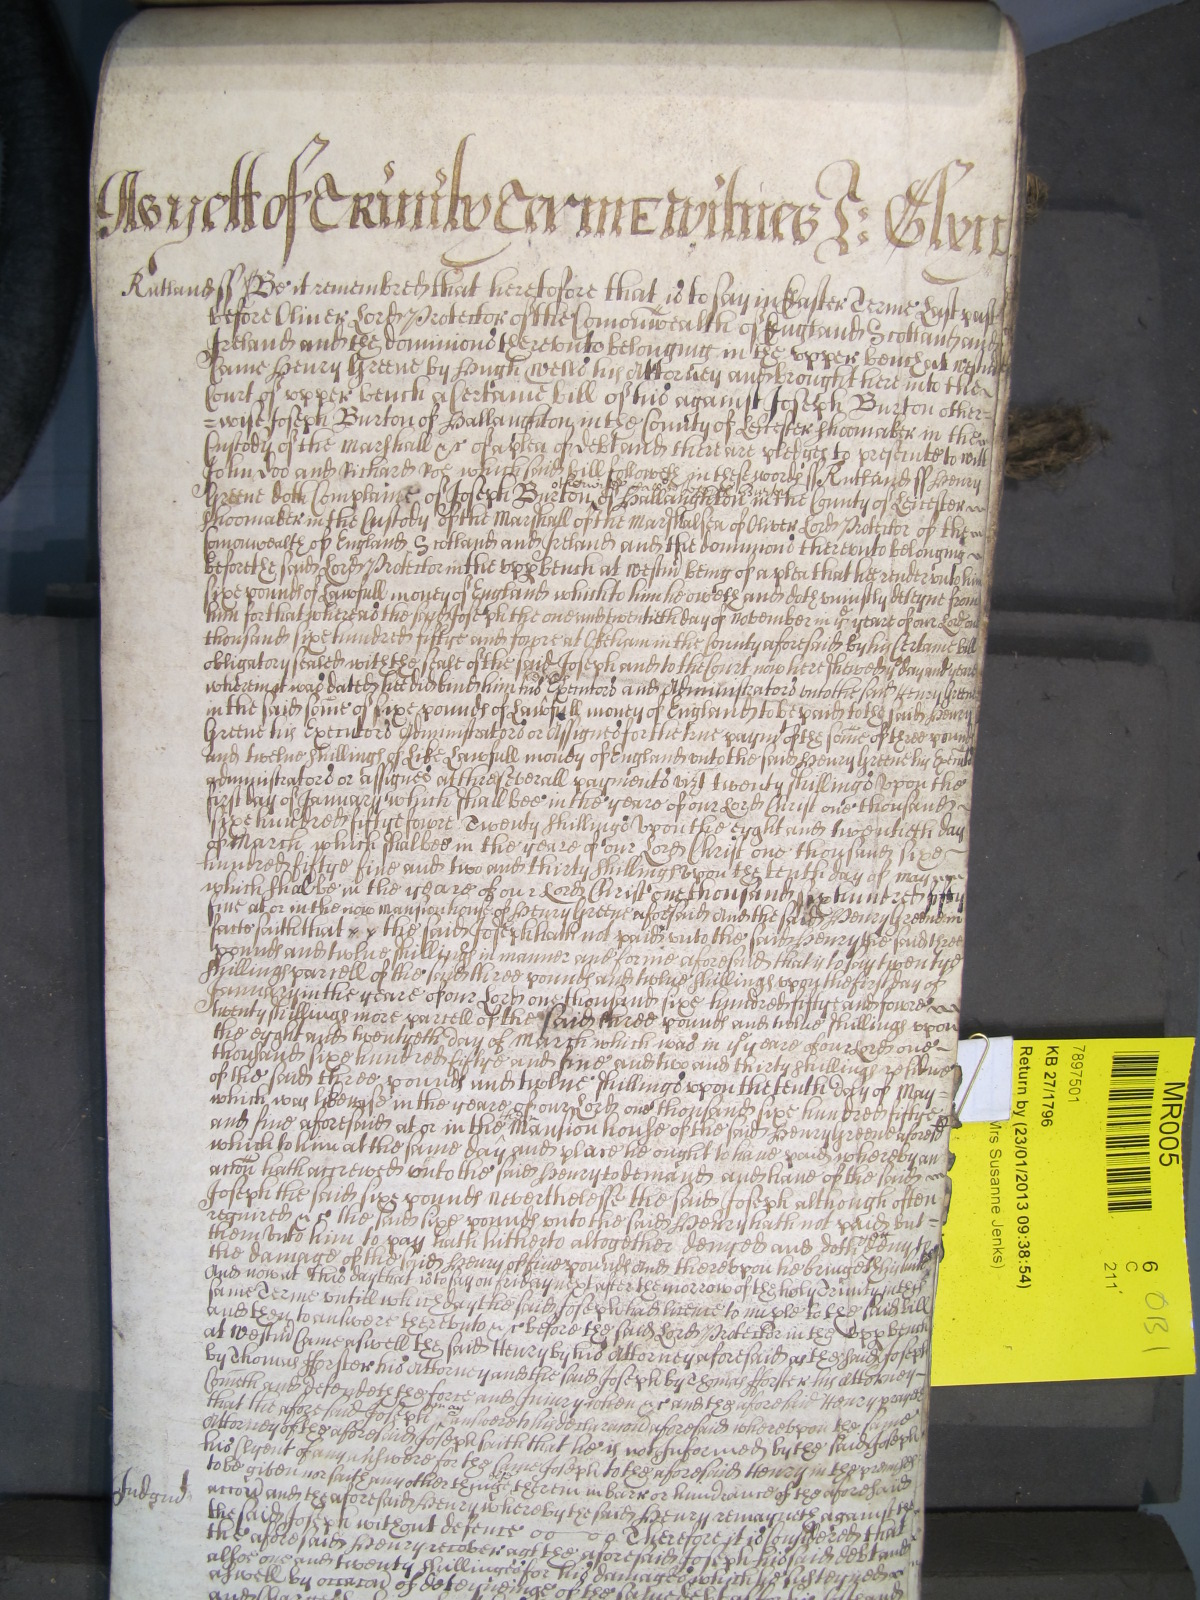 As yett of Trinity Terme witnes J: Glyn
Rutland ss Be it remembred that heretofore that is to say in Easter Terme Last past
before Oliver Lord Protector of the Comonwealth of England Scotland and
Ireland and the dominions thereunto belonging in the upper bench at westm
Came Henry Greene by Hugh his Attorney and brought here into the
Court of upper bench a certaine bill of his against Joseph Burton other=
=wise Joseph Burton of Hallaughton in the County of Leicester shoomaker in the
Custody of the Marshall &c of a plea of debt and there are pledges to prosecute to witt
John Doo and Richard Roe which said bill followeth in these words ss Rutland ss Henry
Greene doth Complaine of Joseph Burton of Hallaughton in the County of Leicester
shoomaker in the Custody of the Marshall of the Marshalsea of Oliver Lord Protector of the
Comonwealth of England Scotland and Ireland and the dominions thereunto belonging
before the said Lord Protector in the upp bench at westm being of a plea that he render unto him
sixe pounds of Lawfull money of England which to him he oweth and doth uniustly deteyne from
him for that whereas the said Joseph the one and twentieth day of November in ye yeare of our Lord one
thousand sixe hundred fiftye and fowre at Okeham in the County aforesaid by his certaine bill
obligatory sealed with the seale of the said Joseph and to the Court now here shewed ye day and yeare
whereof was dated hee did bind him his Executors and Administrators unto the said Henry Greene
in the said some of sixe pounds of Lawfull money of England to be paid to the said Henry
Greene his Executors Administrators or Assignes for the true paymt of the some of three pounds
and twelve shillings of Like Lawfull money of England unto the said Henry Greene his Executors
administrators or assignes at three severall payments vizt twenty shillings upon the
first day of January which shall bee in the yeare of our Lord Christ one thousand
sixe hundred fiftye fowre Twenty shillings upon the eyght and twentieth day
of March which shalbee in the yeare of our Lord Christ one thousand sixe
hundred fiftye five and two and thirty shillings upon the tenth day of may
which shalbe in the yeare of our Lord Christ one thousand sixe hundred fifty
five at or in the now mansion house of Henry Greene aforesaid And the said Henry Greene in
facto saith that x x the said Joseph hath not paid unto the said Henry the said three
pounds and twelve shillings in manner and forme aforesaid that is to say twentye
shillings parcell of the said three pounds and twelve shillings upon the first day of
January in the yeare of our Lord one thousand sixe hundred fiftye and fowre
twenty shillings more parcell of the said three pounds and twelve shillings upon
the eyght and twentyeth day of March which was in ye yeare of our Lord one
thousand sixe hundred fiftye and five and two and thirty shillings residue
of the said three pounds and twelve shillings upon the tenth day of May
which was likewise in the yeare of our Lord one thousand sixe hundred fiftye
and five aforesaid at or in the Mansion house of the said Henry Greene aforesd
which to him at the same day and place he ought to have paid whereby an
accon hath accrewed unto the said Henry to demand and have of the said
Joseph the said sixe pounds Neverthelesse the said Joseph although often
required &c the said sixe pounds unto the said Henry hath not paid but
them unto him to pay hath hitherto altogether denyed and doth deny to
the damage of the said Henry of five pounds and thereupon he bringeth his suite
And now at this day that is to say on friday next after the morrow of the holy Trinity in this
same Terme untill which day the said Joseph had licence to imple to the said bill
and then to answere thereunto &c before the said Lord Protector in the upp bench
at westm Came aswell the said Henry by his Attorney aforesaid as the said Joseph
by Thomas fforster his Attorney and the said Joseph by Thomas fforster his Attorney
Cometh and defendeth the force and Iniury when &c and the aforesaid Henry prayeth
that the aforesaid Joseph may answere to his declaracon aforesaid whereupon the same
Attorney of the aforesaid Joseph saith that he is not Informed by the said Joseph
his Clyent of any answere for the same Joseph to the aforesaid Henry in the premisses
to be given nor saith any other thinge therein in barr or hindrance of the aforesaid
accon and the aforesaid Henry whereby the said Henry remayneth against the
Judgmt
the said Joseph without defence Therefore it is Considered that
the aforesaid Henry recover agt the aforesaid Joseph his said debt and
alsoe one and twenty shillinges for his damages which he susteyned
aswell by occacon of deteyninge of the said debt
MR005
6
C
211
OB 1
7897501
KB 27/1796
Return by (23/01/2013 09:38:54)
Mrs Susanne Jenks)